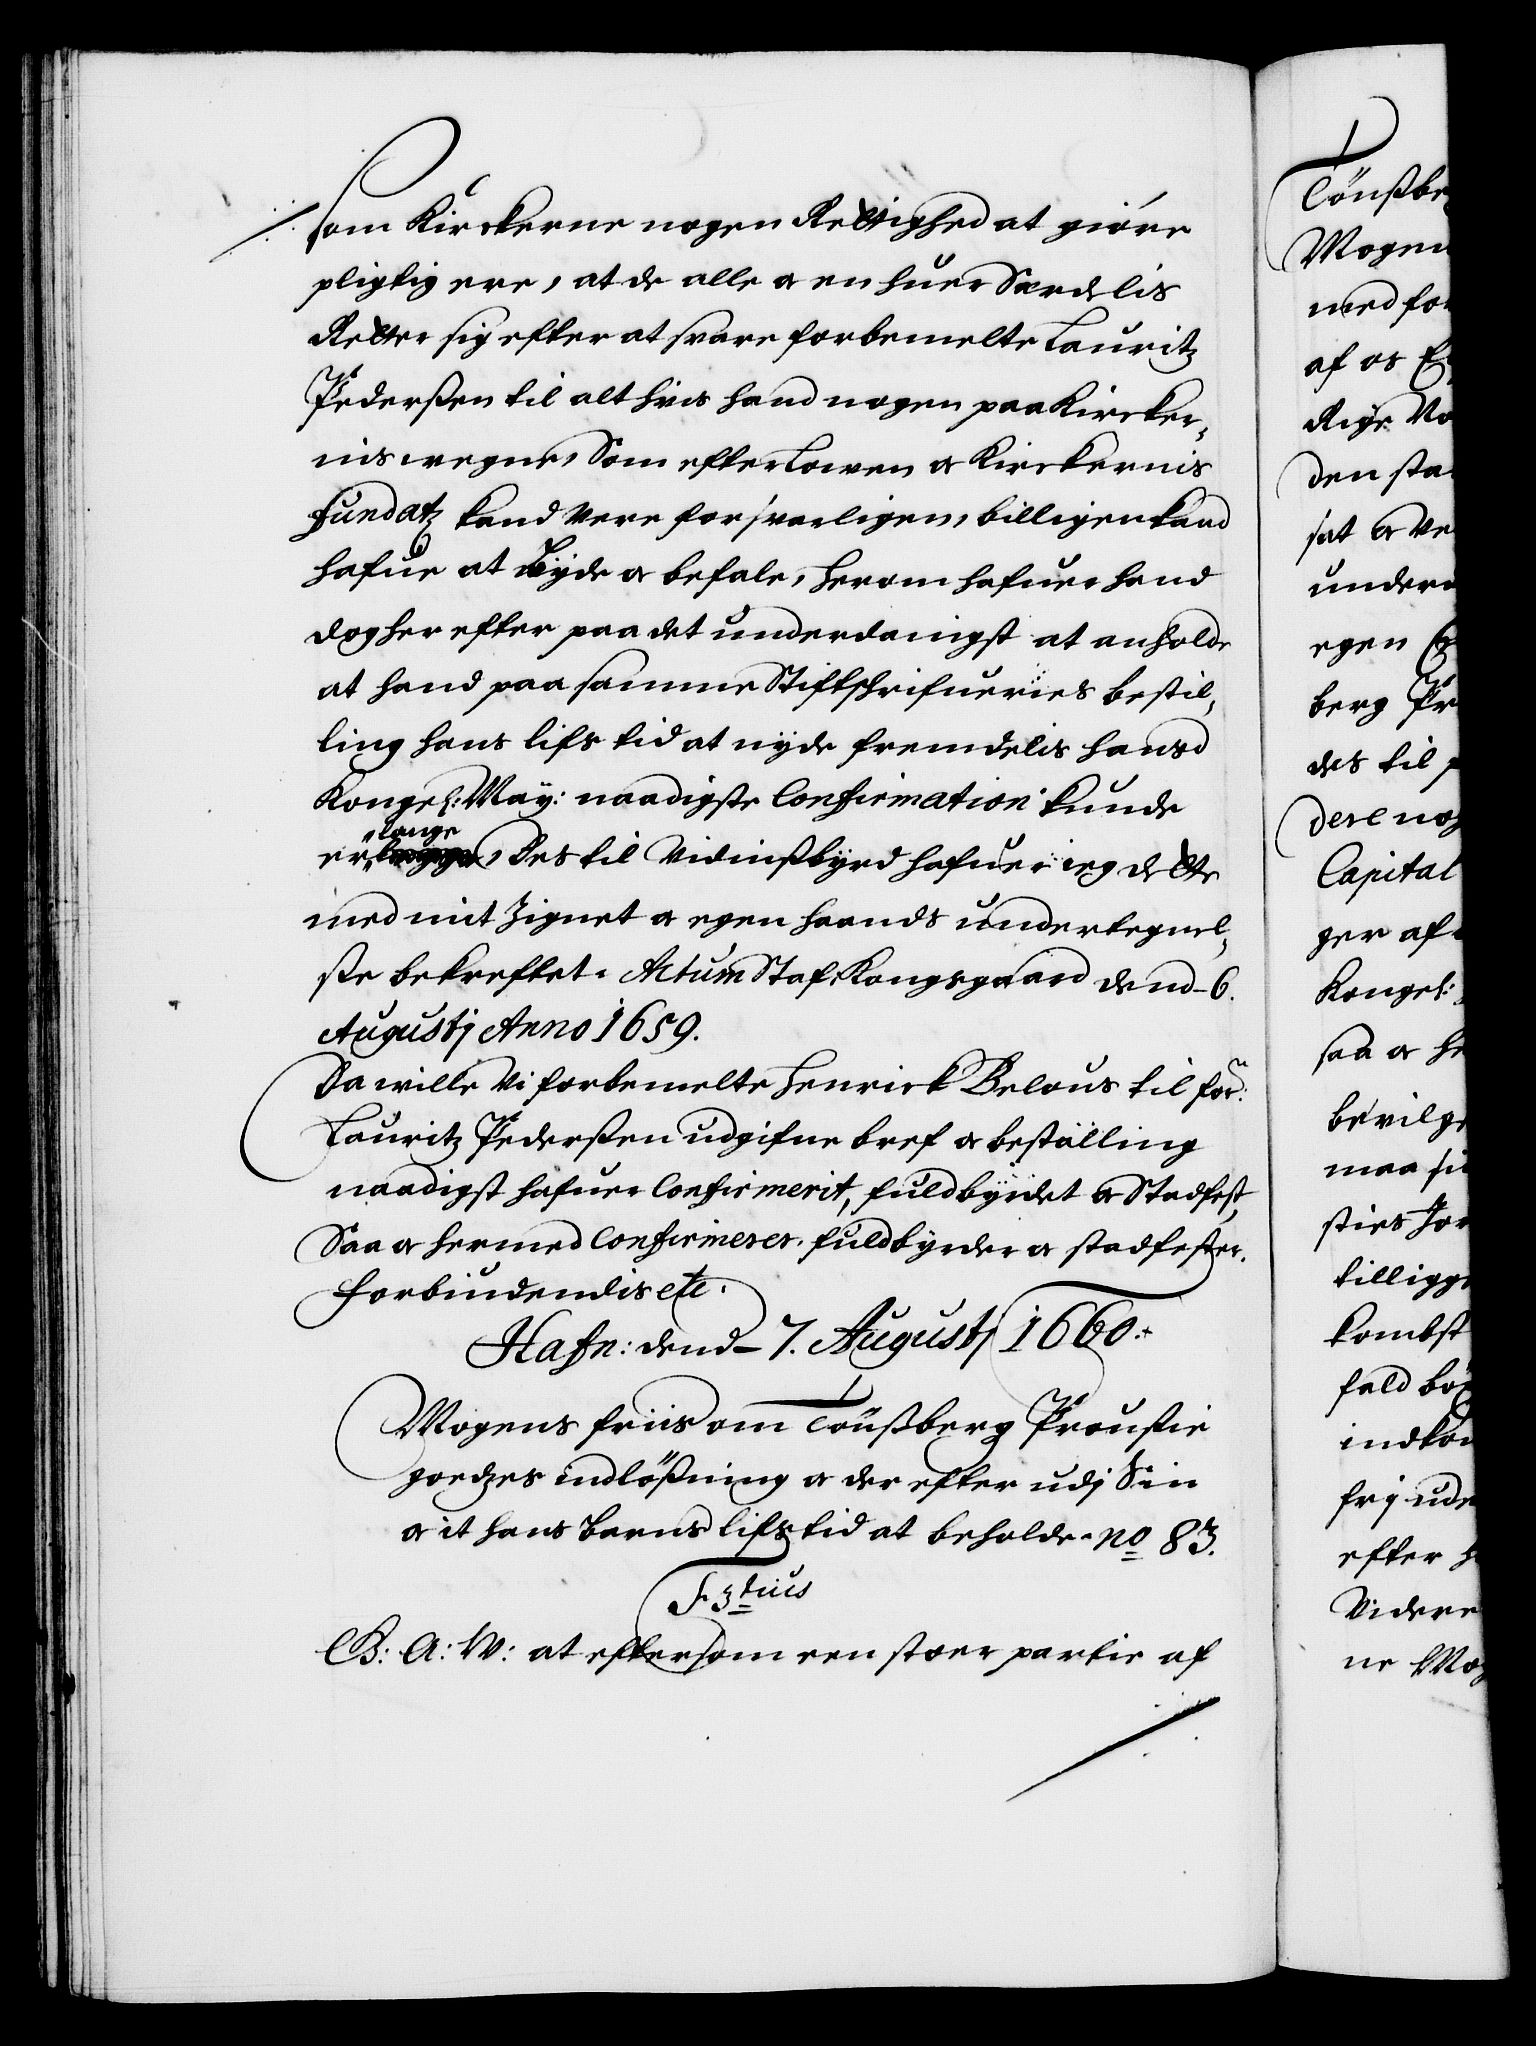 som Kirckerne nogen Rettighed at giöre
pligtig ere, at de alle & en huer Særdelis
Retter sig efter at svare forbemelte Lauritz
Pederßen til alt hvis hand nogen paa Kircker,
nis wegne, Som efter Lowen & Kirckernis
fundatz kand vere forsvarligen, billigen kand
hafue at Byde & befale, herom hafuer hand
dog her efter paa det underdanigst at anholde
at hand paa samme Stiftschrifueries bestil,
ling hans lifs tid at nyde fremdelis hans
Kongel: May: naadigste Confirmation kunde
erlange, Des til Vidinßbyrd hafuer ieg dette
med mit Zignet & egen haands undertegnel,
ße bekreftet. Actum Staf: Kongsgaard dend 6.
Augustj Anno 1659.
Da wille Vi forbemelte Henrick Belous til for:n
Lauritz Pederßen udgifne bref & beställing
naadigst hafuer Confirmerit, fuldbyrdet & Stadfest,
Saa & hermed Confirmerer. fuldbyrder & stadfester.
forbiudendis etc.
Hafn: dend 7. Augustj 1660.
Mogens friis om Tönßberg Proustie
goedzes indlößning & der efter udj Sin
& it hans Barns lifs tid at beholde. no 83.
F. 3tius
G: A: W: at eftersom een stoer partie af
Tönßbe
Mogen
med for
af os E
Rige No
den sta
sat & ve
under
egen
berg Pr
des til
dere nog
Capital
ger af
Kongel:
saa & he
bevilge
maa
sties
tilligge
kombst
fald
indkom
frj ude
efter h
Videre
ne Mog